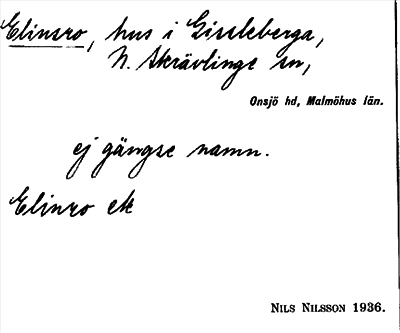 Elinsro, hus i Gissleberga,
N. Skrävlinge sn,
Onsjö hd, Malmöhus län.
ej gängse namn.
Elinro ek
NILS NILSSON 1936.